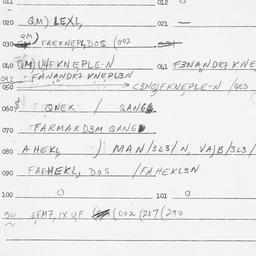 011 012 0
020 QM) LEXL, 021 —
030 QM) FARKNEPL, DOS (002 031
040 QM) U4FKNEPLE-N 041 F3NANDR7 KNE
042 FANANDR7 KNEPL3N
050 → C3NGFKNEPLE-N / GED
060 QNEX / QANG
070 FARMAXD3M QANE
080 A HEKL, ) MAN/3L3/N, VAJB/3L3/
090 FARHEKL, DOS / FAHEKL3N
100 0 101 0
201 6FM7, IXUF (002 (287 (290